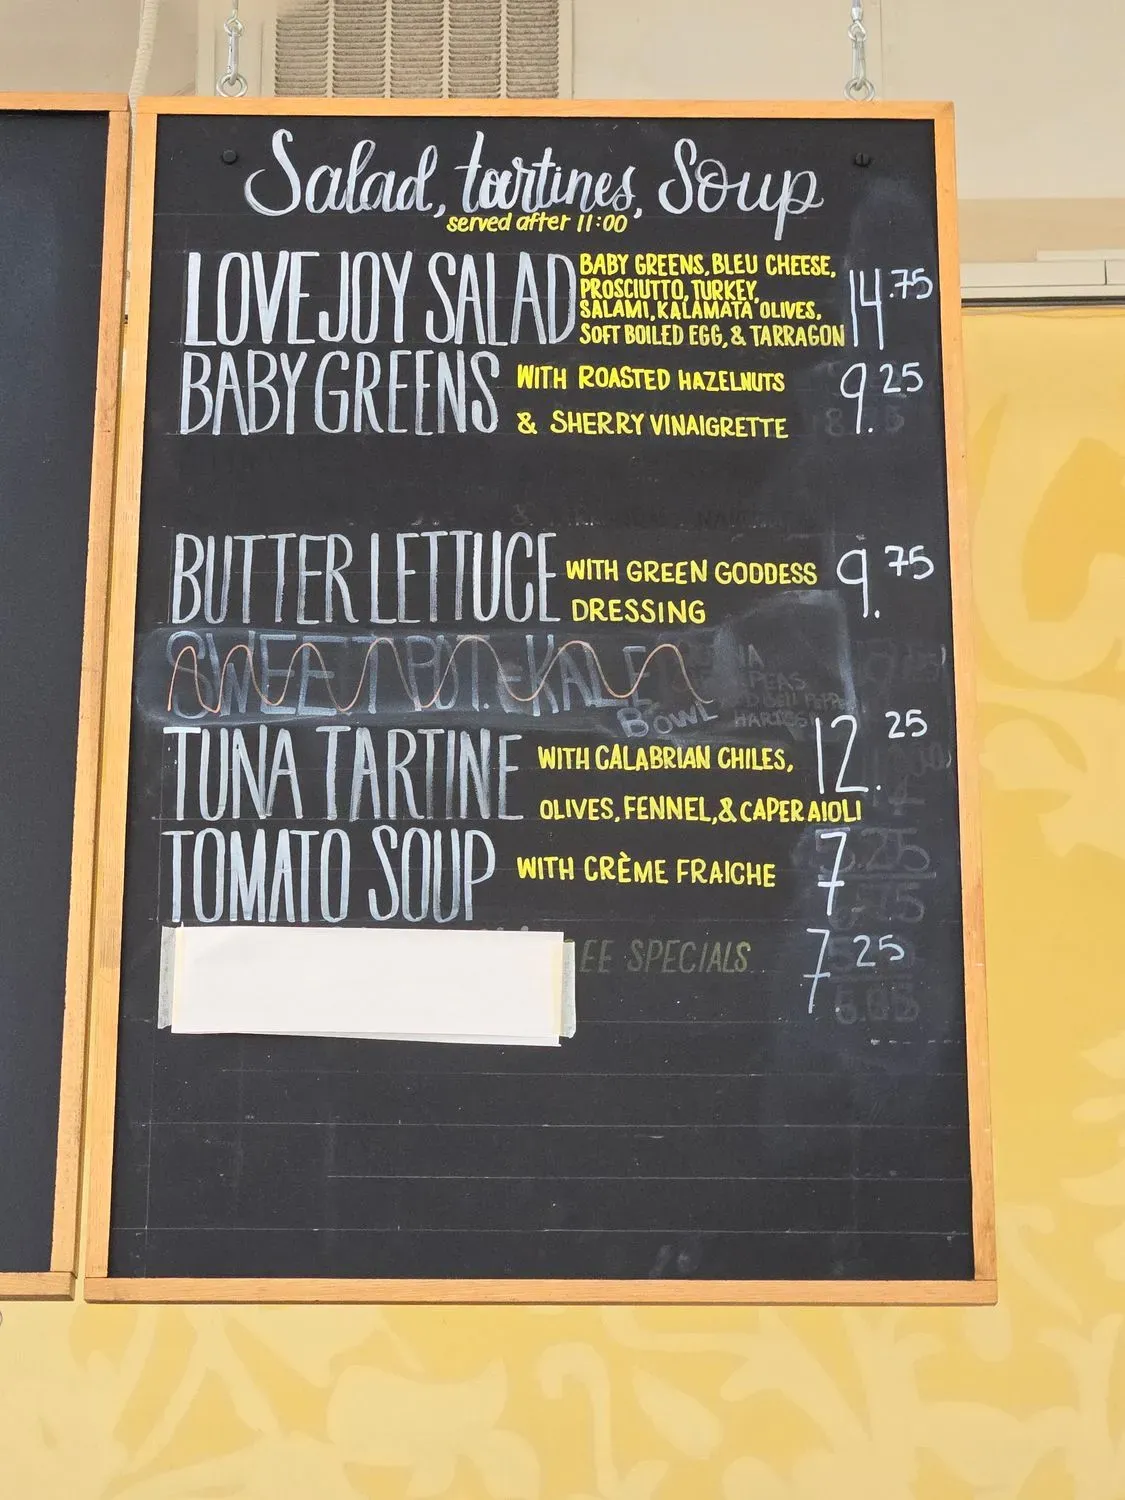 Salad, tartines, Soup
served after 11:00
LOVEJOY SALAD BABY GREENS, BLEU CHEESE, 14.75
PROSCIUTTO, TURKEY,
SALAMI, KALAMATA OLIVES,
SOFT BOILED EGG, & TARRAGON
BABY GREENS WITH ROASTED HAZELNUTS 9.25
& SHERRY VINAIGRETTE
BUTTER LETTUCE WITH GREEN GODDESS 9.75
DRESSING
SWEET POT. & KALE
BOWL
TUNA TARTINE WITH CALABRIAN CHILES, 12.25
OLIVES, FENNEL, & CAPER AIOLI
TOMATO SOUP WITH CRÈME FRAICHE 7
EE SPECIALS 7 25